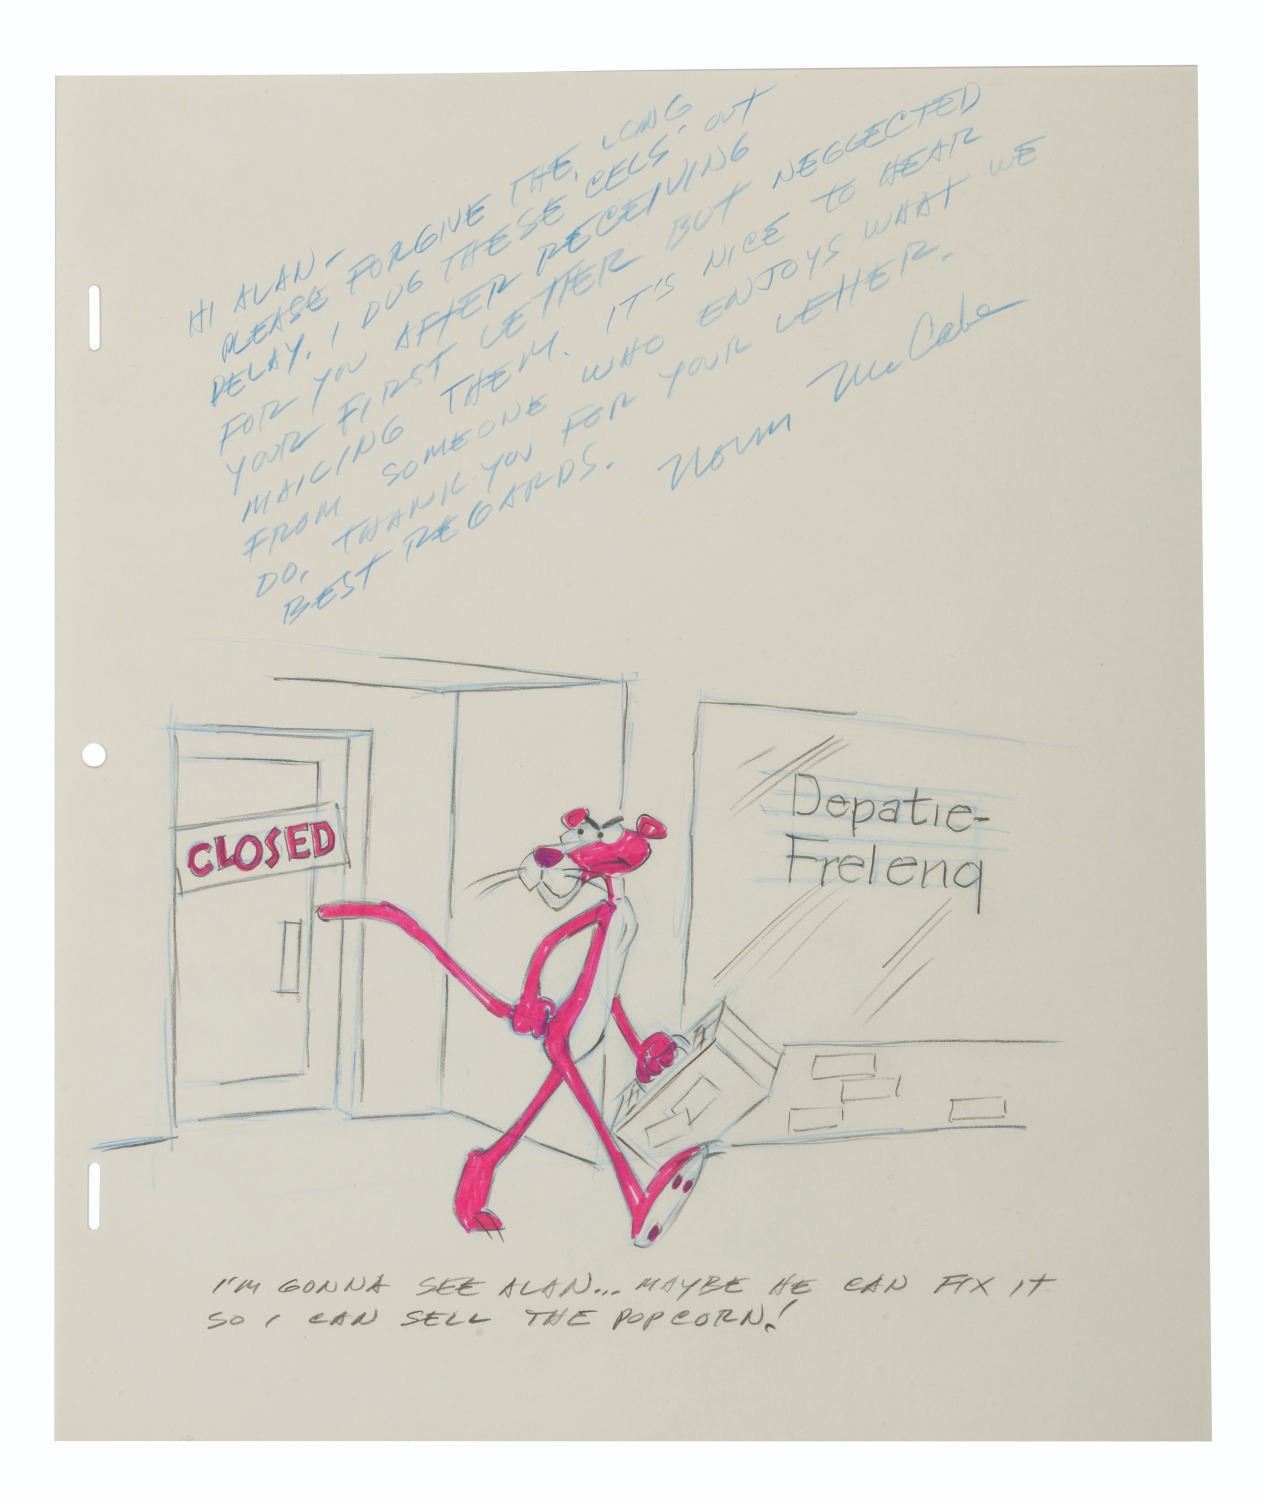 HI ALAN-
PLEASE FORGIVE THE, LONG
DELAY. I DUG THESE CELS OUT
FOR YOU AFTER RECEIVING
YOUR FIRST LETTER BUT NEGGECTED
MAILING THEM. IT'S NICE TO HEAR
FROM SOMEONE WHO ENJOYS WHAT WE
DO. THANK YOU FOR YOUR LETTER.
BEST REGARDS. Norm McCabe
CLOSED
Depatie-
Freleng
I'M GONNA SEE ALAN... MAYBE HE CAN FIX IT
SO I CAN SELL THE POPCORN!